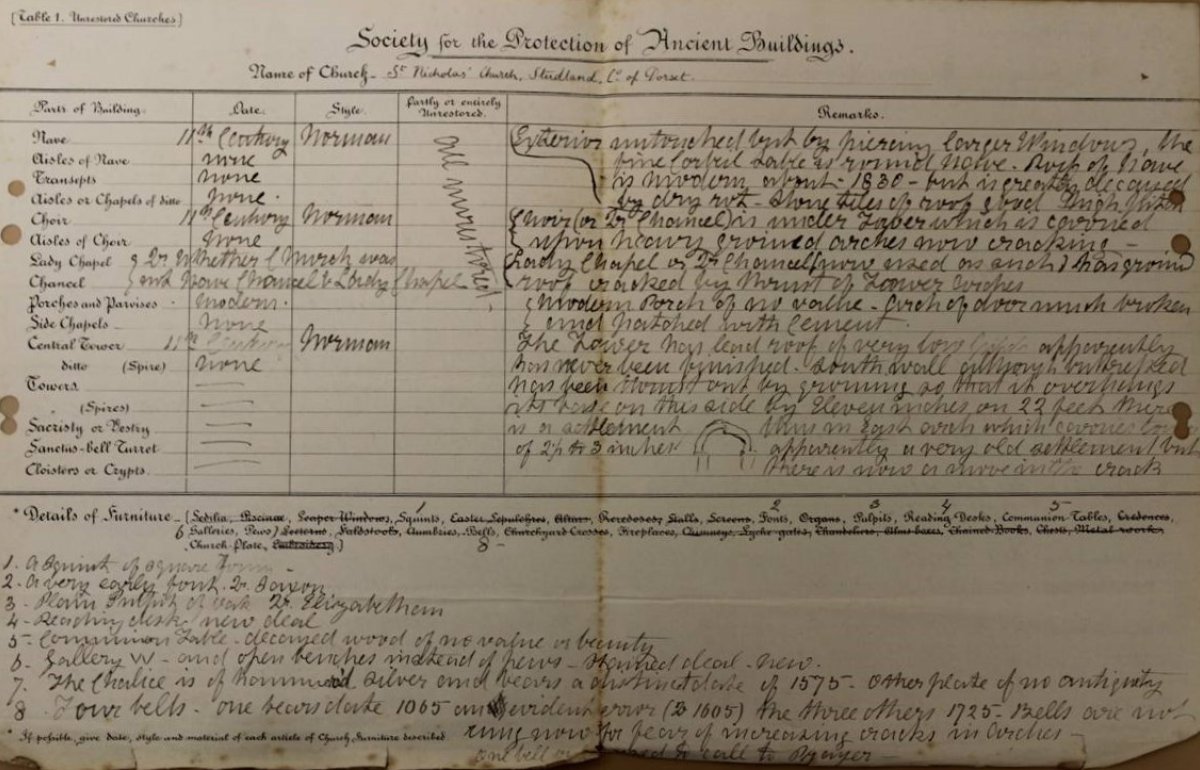 [Table 1. Unrestored Churches]
Society for the Protection of Ancient Buildings.
Name of Church - St Nicholas' Church, Studland, Co of Dorset.
Parts of Building. Date. Style. Partly or entirely Unrestored. Remarks.
Nave 11th Century Norman All unrestored Exterior untouched but by piercing larger Windows, the
Aisles of Nave none fine corbel table is round Nave - Roof of Nave
Transepts none is modern about 1830 - but is greatly decayed
Aisles or Chapels of ditto none. by dry rot - Stone tiles of roof good high pitch
Choir 11th Century Norman Choir (or Qr Chancel) is under Tower which is carried
Aisles of Choir none upon heavy groined arches now cracking -
Lady Chapel Qr Whether Church was Lady Chapel or Qr Chancel (now used as such) has groined
Chancel not Nave Chancel & Lady Chapel roof cracked by thrust of Tower arches
Porches and Parvises modern. Modern Porch of no value - Arch of door much broken
Side Chapels none and patched with cement
Central Tower 11th Century Norman The Tower has lead roof of very low apparently
ditto (Spire) none has never been finished. South wall although buttressed
Towers has been thrust out by groining so that it overhangs
(Spires) its base on this side by Eleven inches on 22 feet there
Sacristy or Vestry is a settlement thus in East arch which carries
Sanctus-bell Turret of 2½ to 3 inches apparently a very old settlement but
Cloisters or Crypts. there is now a move in the crack
* Details of Furniture - (Sedilia, Piscinae, Leaper Windows, Squints, Easter Sepulchres, Altars, Reredoses, Stalls, Screens, Fonts, Organs, Pulpits, Reading Desks, Communion Tables, Credences,
Galleries, Pews, Lecterns, Faldstools, Aumbries, Bells, Churchyard Crosses, Fireplaces, Chimneys, Lyche-gates, Chandeliers, Alms boxes, Chained Books, Chests, Metal-work,
Church-Plate, Embroidery.)
1. A Squint of square form -
2. A very early font. Qr Saxon
3. Plain Pulpit of oak Qr Elizabethan
4. Reading desk / new deal
5. Communion Table - decayed wood of no value or beauty
6. Gallery W - and open benches instead of pews - stained deal - new.
7. The Chalice is of hammered silver and bears a distinct date of 1575 - other plate of no antiquity
8 Four bells - one bears date 1065 an evident error (Qr 1605) the three others 1725 - Bells are not
* If possible, give date, style and material of each article of Church Furniture described. rung now for fear of increasing cracks in Arches -
one bell used to call to Prayer -